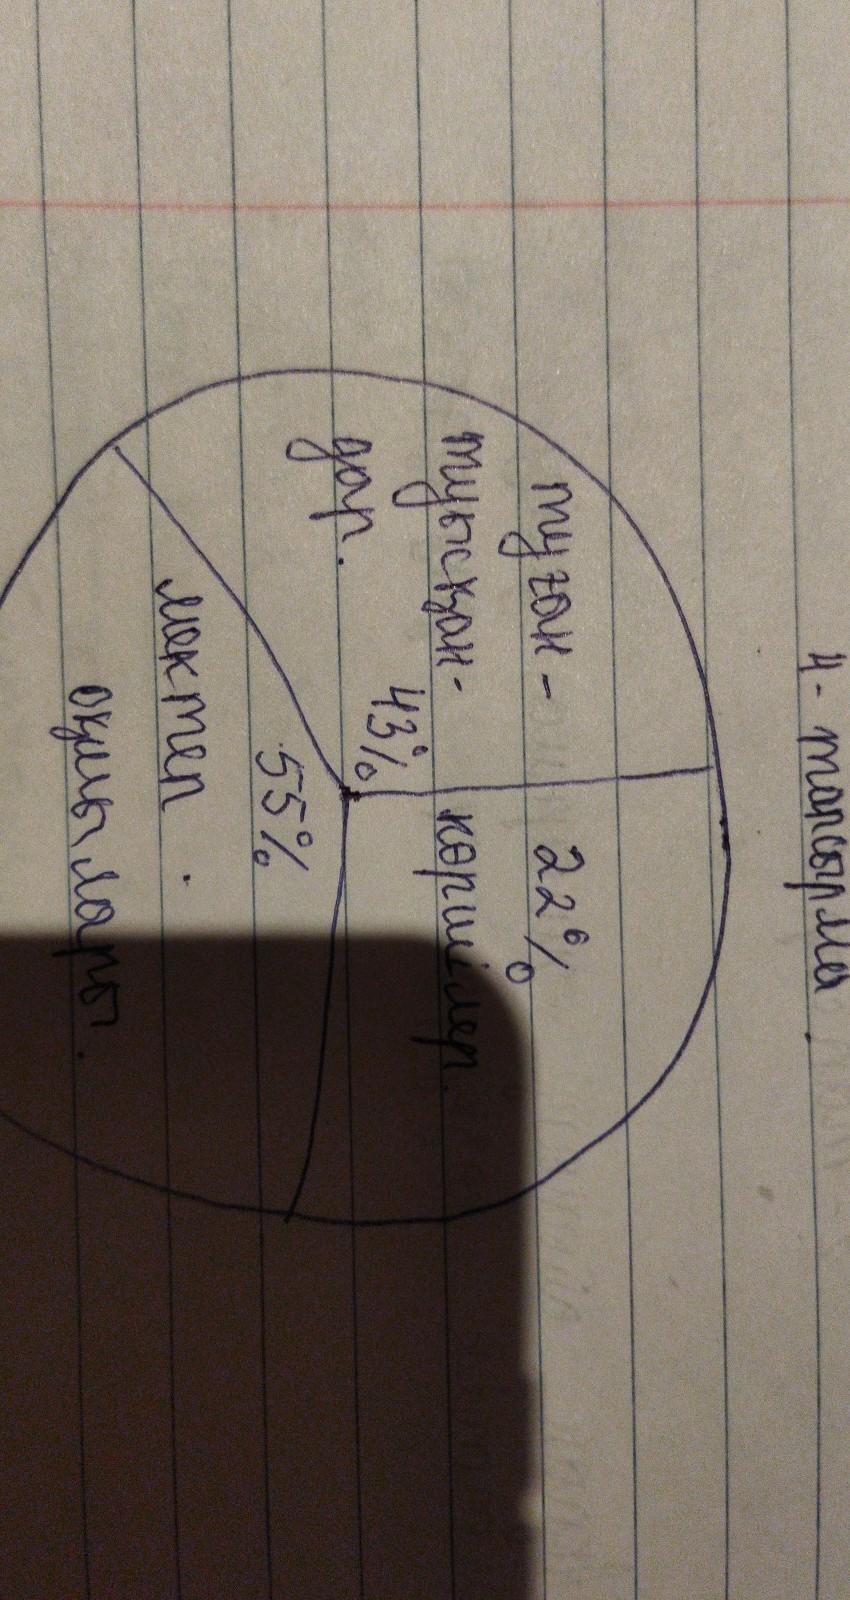 4- тапсырма.
туған-
туысқан-
дар.
43%
22%
көршілер.
55%
мектеп
оқушылары.